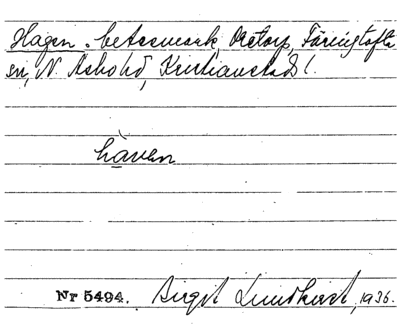 Hagen, betesmark, Oretorp, Färingtofta
sn, N. Åsbo hd, Kristianstads l.
hàven
Nr 5494. Birgit Lundkvist, 1936.